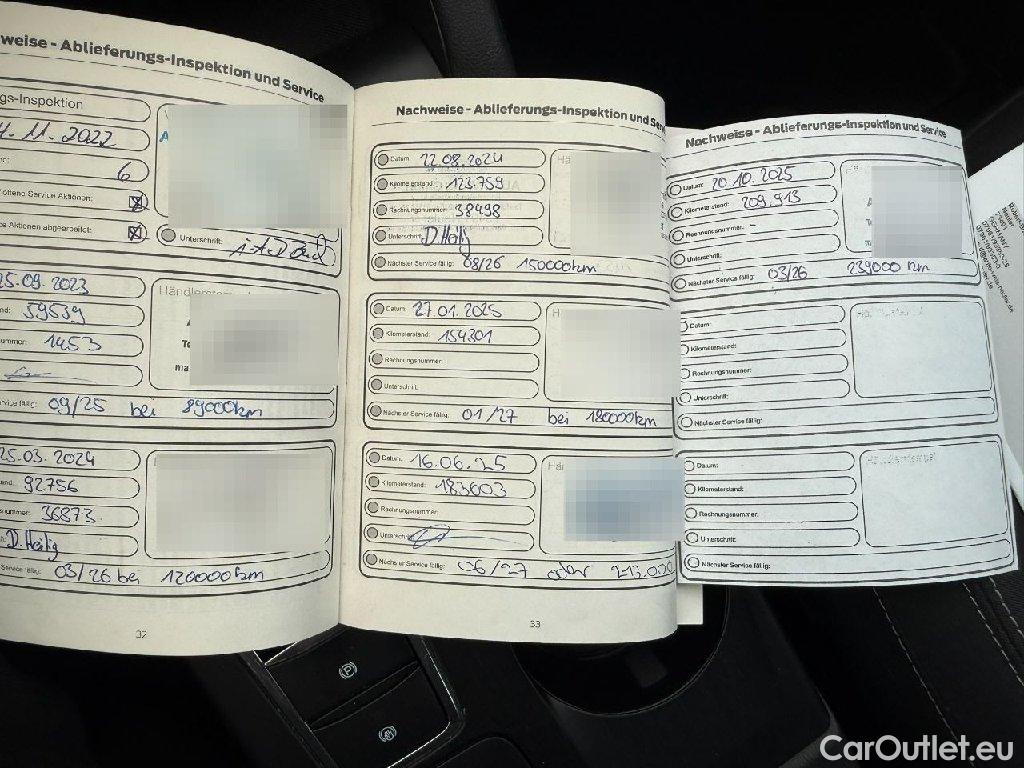 weise - Ablieferungs-Inspektion und Service
gs-Inspektion
4.11.2022
6
offene Service Aktionen:
Aktionen abgearbeitet:
Unterschrift:
25.09.2023
59539
1453
Service fällig: 09/25 bei 89000km
25.03.2024
92756
36873
D. Heilig
Service fällig: 03/26 bei 120000km
32
Nachweise - Ablieferungs-Inspektion und Serv
Datum: 22.08.2024
Kilometerstand: 123.759
Rechnungsnummer: 38498
Unterschrift: D. Heilig
Nächster Service fällig: 08/26 150000km
Datum: 27.01.2025
Kilometerstand: 154301
Rechnungsnummer:
Unterschrift:
Nächster Service fällig: 01/27 bei 180000km
Datum: 16.06.25
Kilometerstand: 183603
Rechnungsnummer:
Unterschrift:
Nächster Service fällig: 06/27 oder 213.000
33
Nachweise - Ablieferungs-Inspektion und Service
Datum: 20.10.2025
Kilometerstand: 209.913
Rechnungsnummer:
Unterschrift:
Nächster Service fällig: 03/26 239000 km
Datum:
Kilometerstand:
Rechnungsnummer:
Unterschrift:
Nächster Service fällig:
Datum:
Kilometerstand:
Rechnungsnummer:
Unterschrift:
Nächster Service fällig:
Händlerstempel
CarOutlet.eu